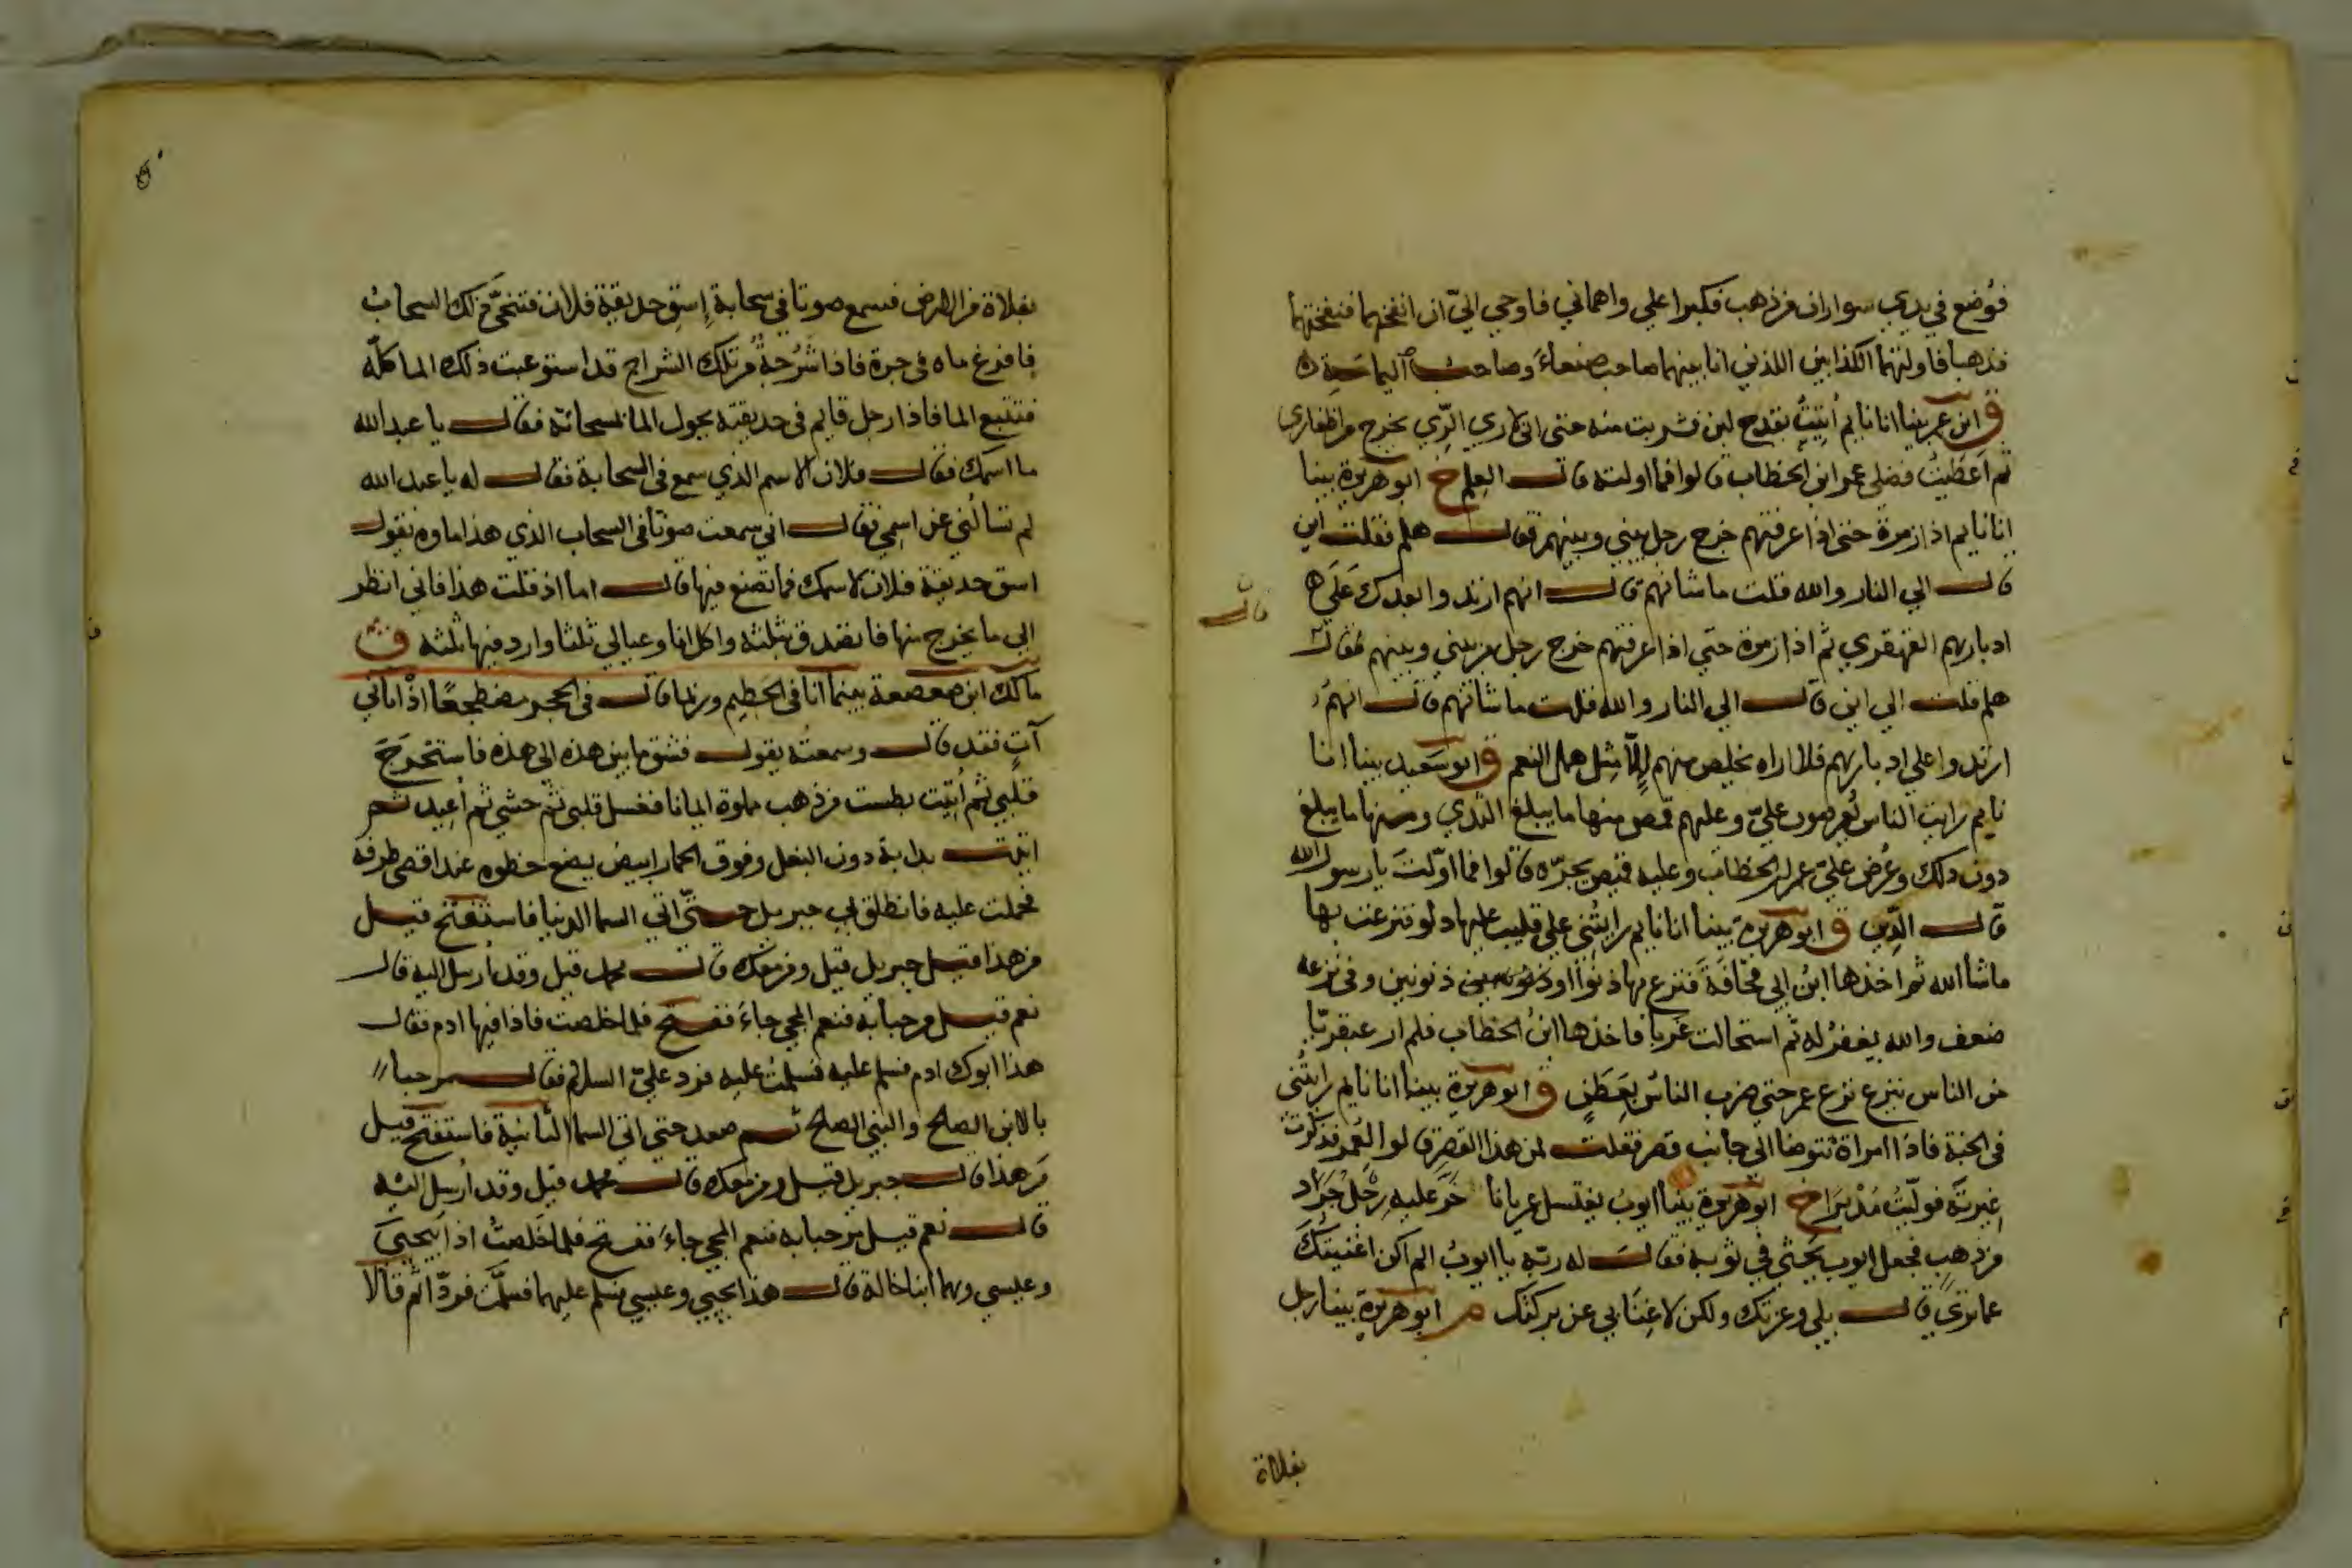 فوُضع في يدي سواران من ذهب فكبرا علي واهماني فاوحي اليّ ان انفخهما فنفختهما
فذهبا فاولتهما الكذابين اللذين انا بينهما صاحب صنعاءَ وصاحب اليمامة ه
ق ابن عمر بينا انا نايم أُتيتُ بقدح لبن فشربت منه حتى اني لاري الرِّي يخرج من اظفاري
ثم اَعطَيتُ فضلي عمر ابن الخطاب قالوا فما اولته قال العِلم خ ابو هريرة بينا
انا نايم اذا زمرة حتى اذا عرفتهم خرج رجل بيني وبينهم فقال هلم فقلت اين
قال الي النار والله قلت ما شانهم قال انهم ارتدوا بعدك عَلَي
ادبارهم القهقري ثم اذا زمرة حتي اذا عرفتهم خرج رجل من بيني وبينهم فقال
قال
هلم قلت الي اين قال الي النار والله قلت ما شانهم قال انهم
ارتدوا علي ادبارهم فلا اراه يخلص منهم إلّا مِثل همل النعم ق ابو سَعيد بينا انا
نايم رايت الناس يُعرضون عليّ وعليهم قمص منها ما يبلغ الثدي ومنها ما يبلغ
دون ذلك وعُرض عليّ عمر بن الخطاب وعليه قميص يجرّه قالوا فما اوّلتَ يا رسول الله
قال الدِّين ق ابو هريرة بينا انا نايم رايتُني علي قليب عليها دلو فنزعت بها
ما شا الله ثم اخذها ابنُ ابي قحَافَة فنزع بها ذنوبًا او ذنوبين وفي نزعه
ضعف والله يغفرُ له ثم استحالت غربا فاخذها ابنُ الخطاب فلم ار عبقريًّا
من الناس ينزع نزع عمر حتي ضرب الناسُ بِعَطَنٍ ق ابو هريرة بينا انا نايم رايتُني
في الجنة فاذا امراة تتوضا الي جانب قصر فقلت لمن هذا القصر قالوا لعُمر فذكرت
غيرتَه فولّيتُ مُدْبِرًا خ ابو هريرة بينا ايوبُ يغتسل عريانا خَرَّ عليه رِجْلُ جَرَاد
من ذهب فجعل ايوب يَحثي في ثوبه فقال له ربّه يا ايوبُ الم اكن اغنيتُكَ
عما تري قال بلي وعزتك ولكن لا غِنَا بي عن بركتك م ابو هريرة بينا رجل
بفلاة
بفلاة من الارض فسمع صوتا في سحابةٍ إسق حديقة فلان فتنحّي ذلك السحابُ
فافرغ ماه في حرة فاذا شَرْجةٌ من تلك الشراج قد استوعبت ذلك الما كلّه
فتتبع الما فاذا رجل قايم في حديقته يحول الما بمسحاته فقال يا عبد الله
ما اسمك فقال فلان الاسم الذي سمع في السحابة فقال له يا عبد الله
لم تسالُني عن اسمِي فقال اني سمعت صوتًا في السحاب الذي هذا ماوه يقول
اسق حديقة فلان لاسمك فما تصنع فيها قال اما اذ قلت هذا فاني انظر
الي ما يخرج منها فاتصدق بثلثه واكل انا وعيالي ثلثا وارد فيها ثلثه ق
مالك ابن صعصعة بينما انا في الحَطِيم وربما قال في الحجر مضطجعًا اذْ اتاني
آتٍ فقد قال وسمعتُه يقول فشق ما بين هذه الي هذه فاستخرَجَ
قلبي ثم أُتيت بطست من ذهب مملوة ايمانا فغسل قلبي ثم حشي ثم أُعِيد ثم
اتيت بدابة دون البغل وفوق الحمار ابيض يضع خطوه عند اقصي طرفه
فحملت عليه فانطلق بي جبريل حتّي اتي السما الدنيا فاستَفتح قيل
من هذا قيل جبريل قيل ومن معك قال محمد قيل وقد أُرسل اليه قال
نعم قيل مرحبا به فنعم المجي جاءَ ففتح فلما خلصت فاذا فيها ادم فقال
هذا ابوك ادم فسلم عليه فسلمتُ عليه فرد عليّ السلام ثم قال مرحبا
بالابن الصلح والنبي الصلح ثم صعد حتي اتي السما الثانية فاستفتح قيل
مَن هذا قال جبريل قيل ومن معك قال محمد قيل وقد أُرسِل اليْه
قال نعم قيل مرحبا به فنعم المجي جاءَ ففتح فلما خَلَصتُ اذا يحيَي
وعيسي وهما ابنا خالة قال هذا يحيي وعيسي فسلم عليهما فسلمت فردّا ثم قالا